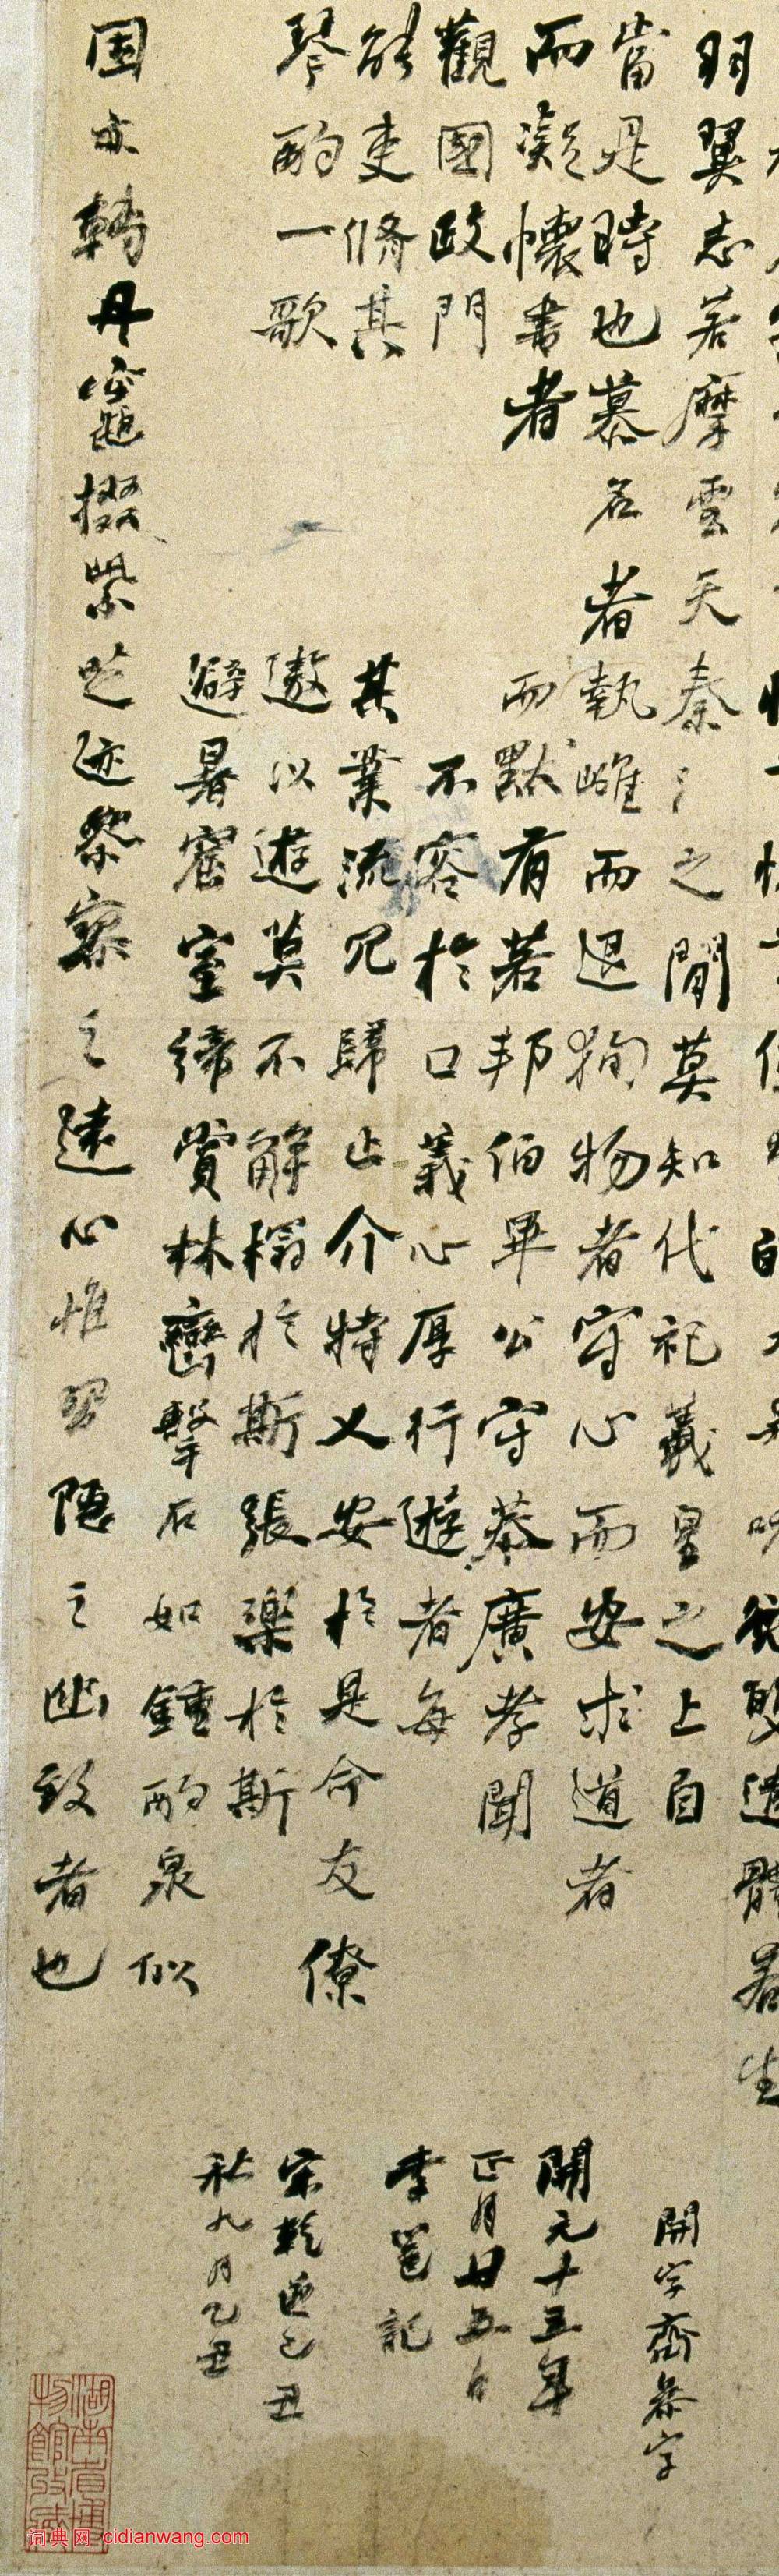 羽翼志若摩雲天秦氵之間莫知代祀羲皇之上自
當是時也慕名者執雌而退狥物者守心而安求道者
而凝懷書者而默有若邦伯畢公守恭廣孝聞
觀國政門不容於口義心厚行遊者每
能吏脩其其業流冗歸止介特乂安於是命友僚
琴酌一歌遨以遊莫不解榻於斯張樂於斯
避暑窟室締賞林巒擊石如鍾酌泉似
固亦轉丹竈掇紫芝迹祭寮之遠心惟習隱之幽致者也
開字齋恭字
開元十五年
正月廿五日
李邕記
宋乾道己丑
秋九月乙丑
湖南省博
物館收藏
词典网 cidianwang.com